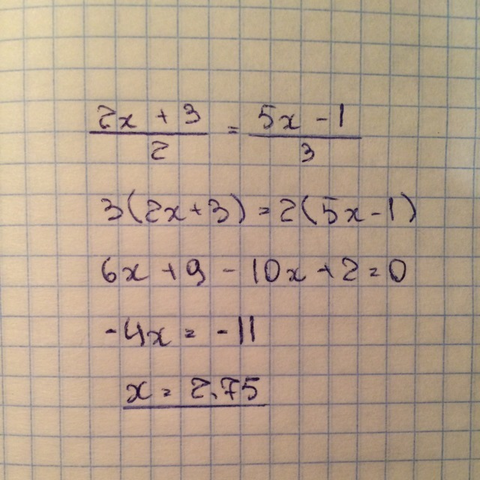 2x + 3 / 2 = 5x - 1 / 3
3(2x+3) = 2(5x-1)
6x + 9 - 10x + 2 = 0
-4x = -11
x = 2.75